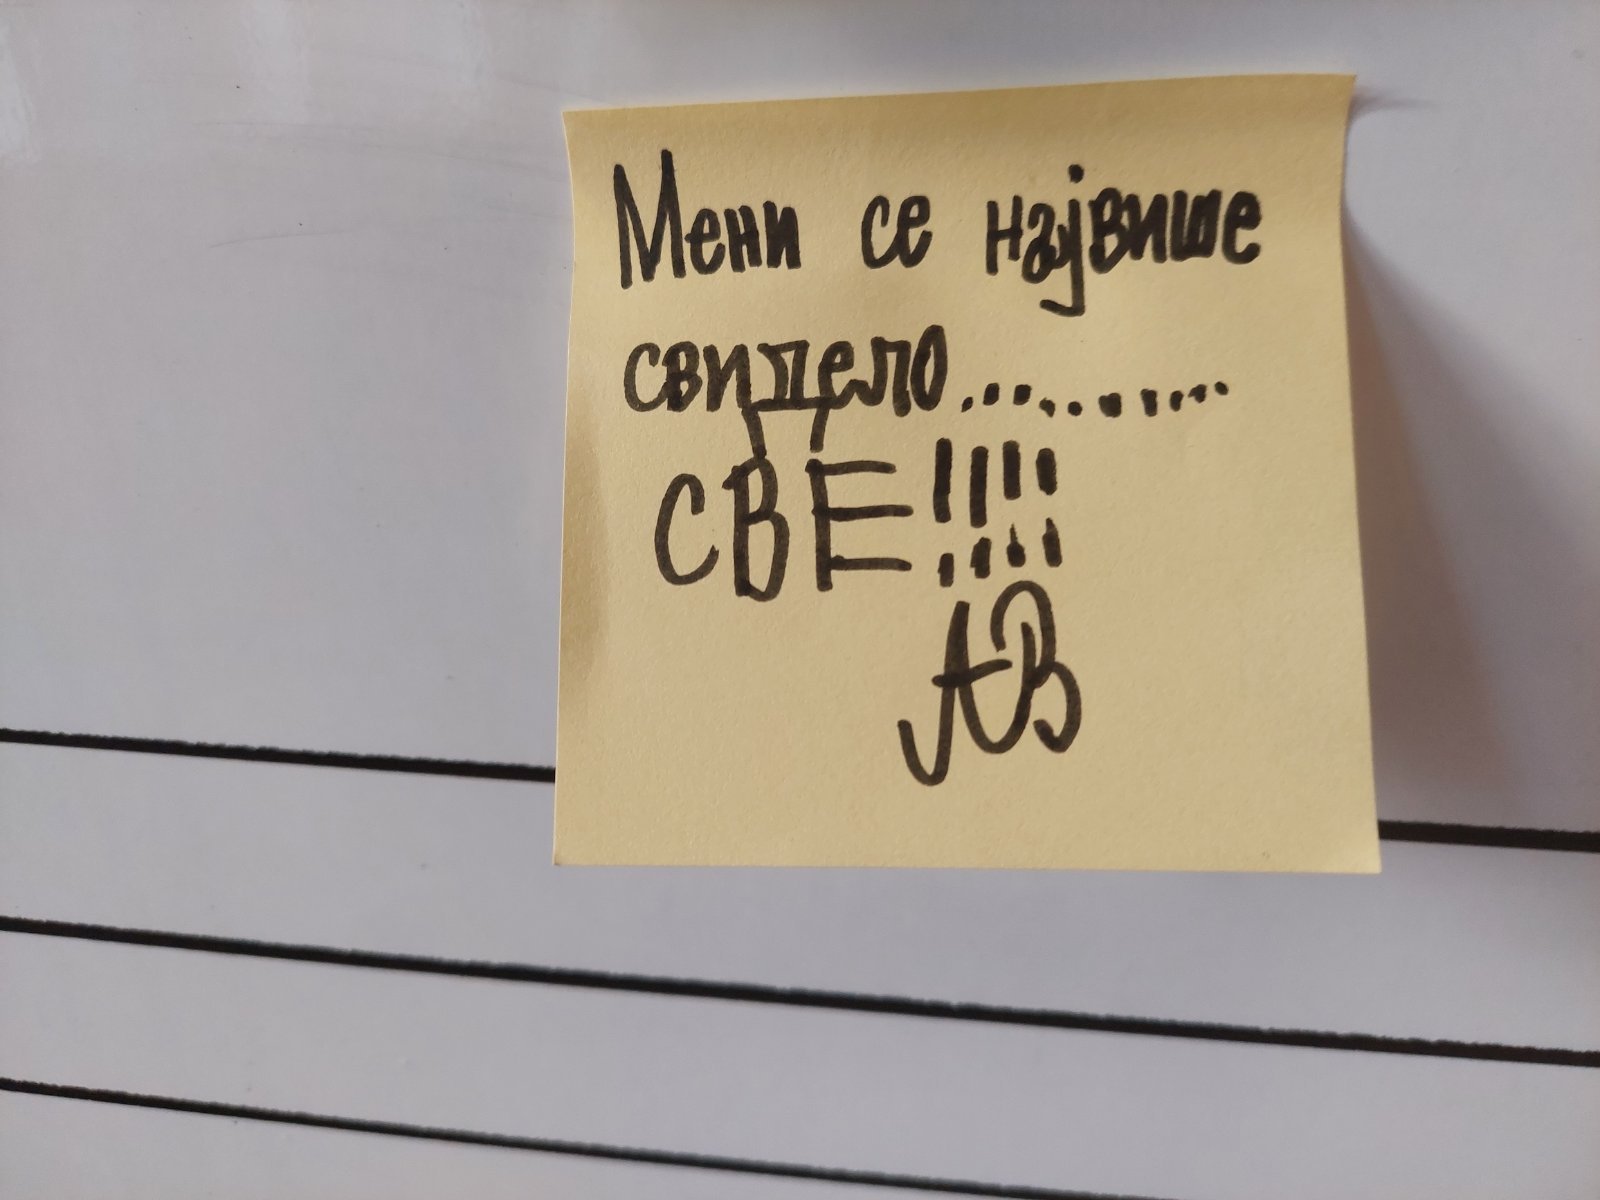 Мени се највише
свидело............
СВЕ!!!!
АВ